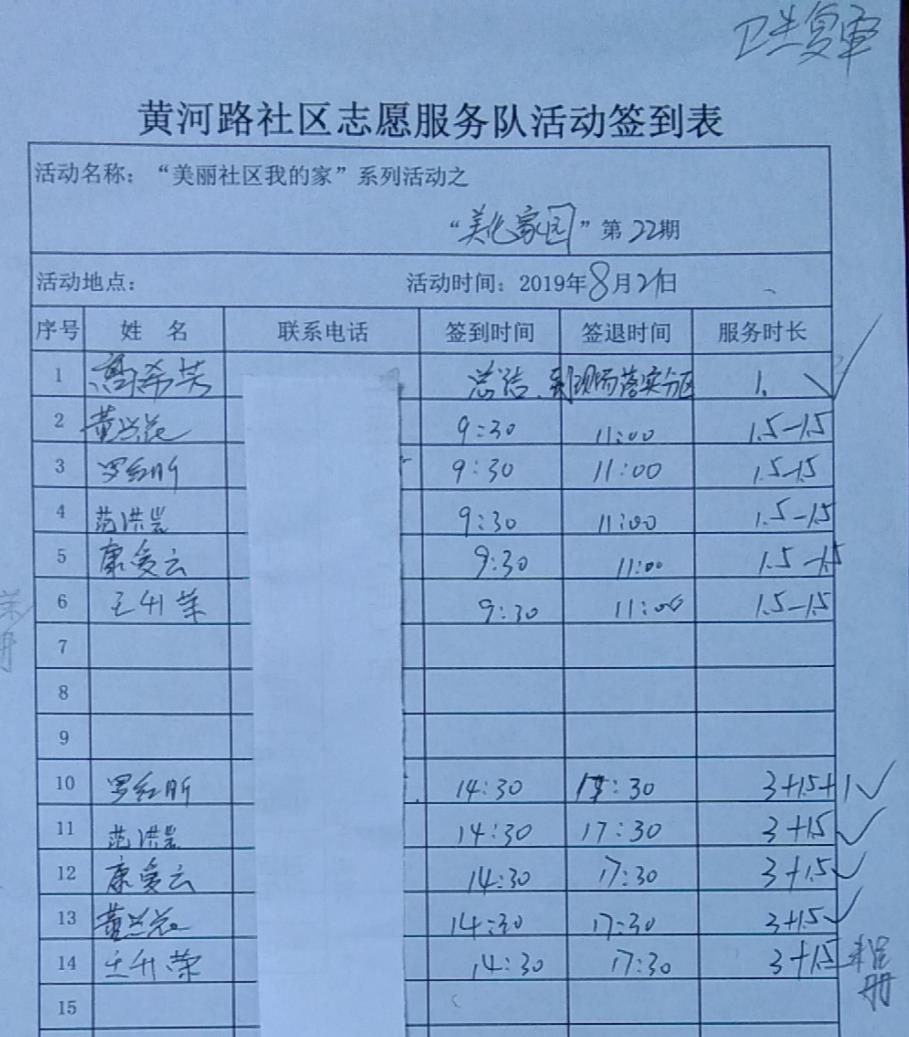 卫生复审
黄河路社区志愿服务队活动签到表
活动名称：“美丽社区我的家”系列活动之
“美化家园”第22期
活动地点： 活动时间：2019年8月21日
序号 姓名 联系电话 签到时间 签退时间 服务时长
1 高希芳 总结、到现场落实分区 1.
2 9:30 11:00 1.5-1.5
3 罗红昕 9:30 11:00 1.5-1.5
4 范洪岩 9:30 11:00 1.5-1.5
5 康爱云 9:30 11:00 1.5-1.5
6 王升荣 9:30 11:00 1.5-1.5
7
8
9
10 罗红昕 14:30 :30 3+1.5+1
11 范洪岩 14:30 17:30 3+1.5
12 康爱云 14:30 17:30 3+1.5
13 14:30 17:30 3+1.5
14 王升荣 14:30 17:30 3+1.5
15